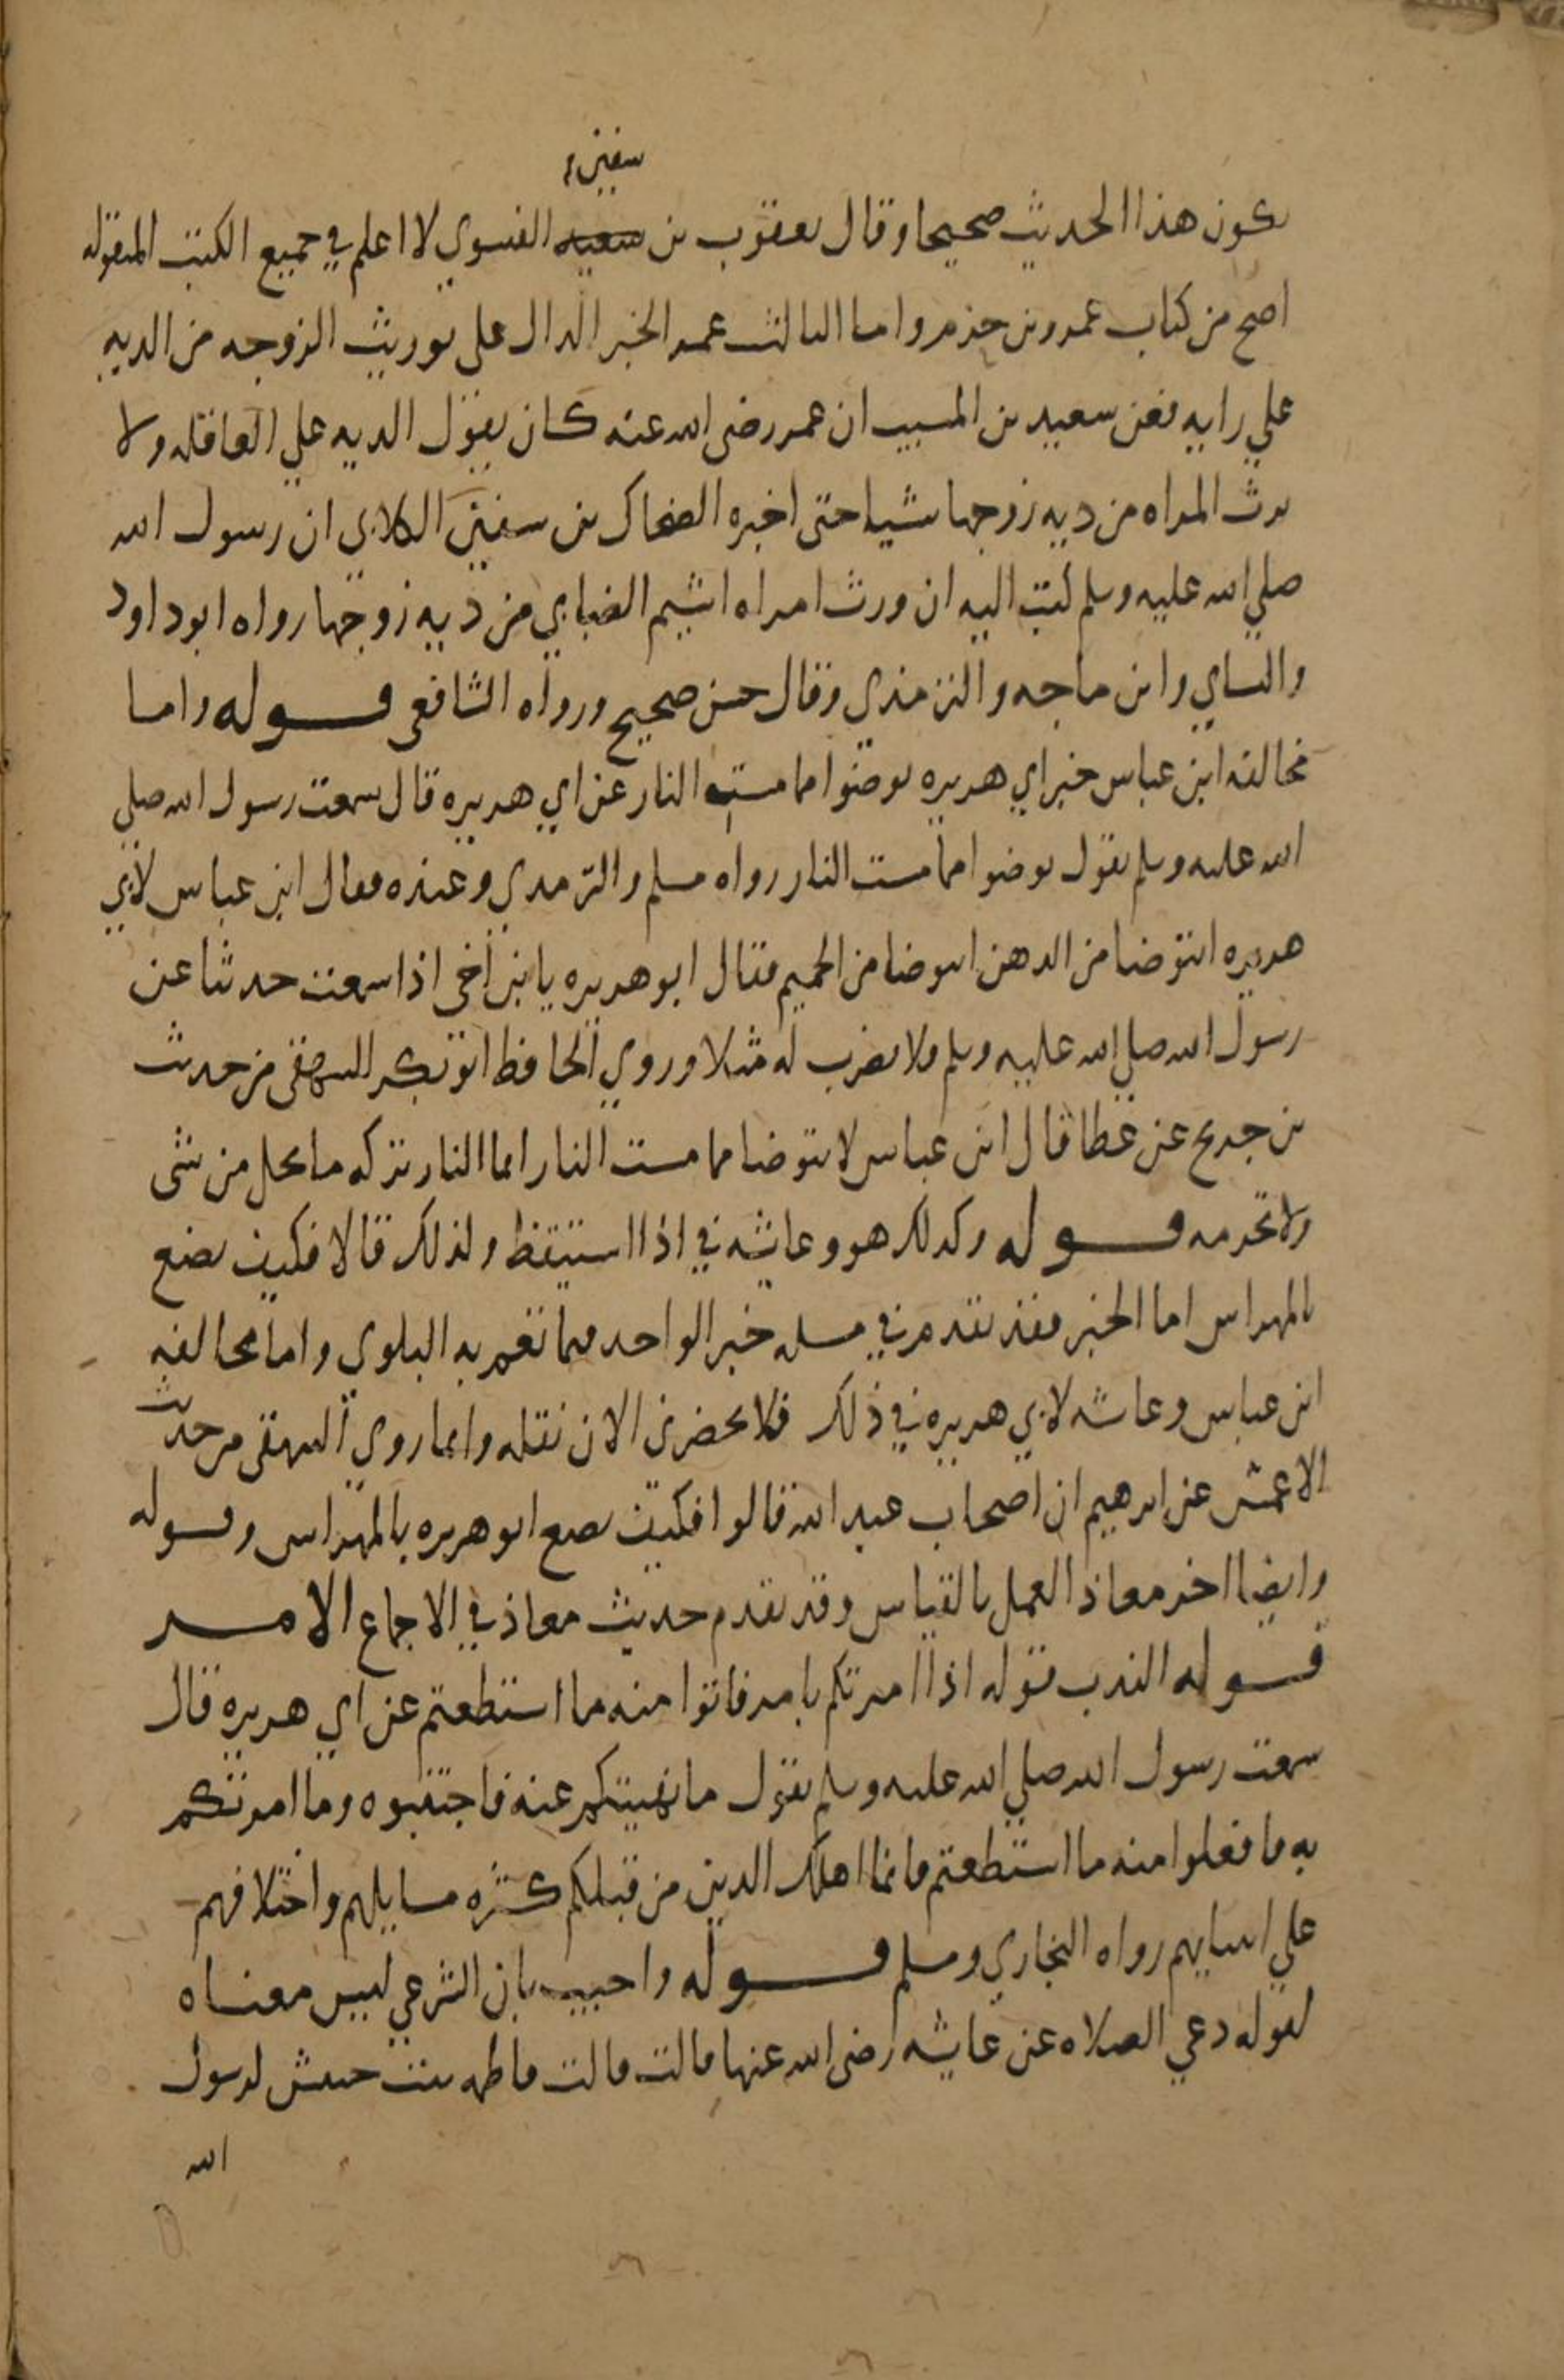 سفين
يكون هذا الحديث صحيحا وقال يعقوب بن سعيد الفسوي لا اعلم في جميع الكتب المنقوله
اصح من كتاب عمرو بن حزم واما الثالث عمد الخبر الدال على توريث الزوجه من الديه
علي رايه فعن سعيد بن المسيب ان عمر رضى الله عنه كان يقول الديه على العاقله ولا
يرث المراه من ديه زوجها شيا حتى اخبره الضحاك بن سفين الكلابي ان رسول الله
صلي الله عليه وسلم كتب اليه ان ورث امراه اشيم الضبابي من ديه زوجها رواه ابو داود
والنساي وابن ماجه والترمذي وقال حسن صحيح ورواه الشافعى قوله واما
مخالفه ابن عباس خبر ابي هريره توضوا مما مسته النار عن ابي هريره قال سمعت رسول الله صلي
الله عليه وسلم يقول توضوا مما مست النار رواه مسلم والترمذي وعنده فقال ابن عباس لابي
هريره انتوضا من الدهن انتوضا من الحميم فقال ابو هريره يا ابن اخى اذا سمعت حديثا عن
رسول الله صلي الله عليه وسلم فلا تضرب له مثلا وروي الحافظ ابو بكر البيهقى من حديث
بن جريج عن عطا قال ابن عباس لا نتوضا مما مست النار انما النار بركه ما تحل من شى
ولا تحرمه قوله وكذلك هو وعايشه في اذا استيقظ ولذلك قالا فكيف نصنع
بالمهراس اما الخبر فقد تقدم في مسله خبر الواحد فيما تعم به البلوي واما مخالفه
ابن عباس وعايشه لابي هريره في ذلك فلا يحضرني الان نقله وانما روى البيهقى من حديث
الاعمش عن ابرهيم ان اصحاب عبد الله قالوا فكيف يصنع ابو هريره بالمهراس وقوله
وايضا اخر معاذ العمل بالقياس وقد تقدم حديث معاذ في الاجماع الامر
قوله الندب قوله اذا امرتكم بامر فاتوا منه ما استطعتم عن ابي هريره قال
سمعت رسول الله صلي الله عليه وسلم يقول ما نهيتكم عنه فاجتنبوه وما امرتكم
به فافعلوا منه ما استطعتم فانما اهلك الذين من قبلكم كثره مسايلهم واختلافهم
علي انبيايهم رواه البخاري ومسلم قوله واجيب بان الشرعي ليس معناه
لقوله دعي الصلاه عن عايشه رضى الله عنها قالت قالت فاطمه بنت حبيش لرسول
الله